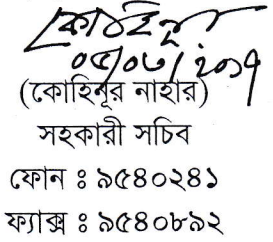 কোহিনূর
০৫/০৬/২০১৭
(কোহিনূর নাহার)
সহকারী সচিব
ফোন ঃ ৯৫৪০২৪১
ফ্যাক্স ঃ ৯৫৪০৮৯২